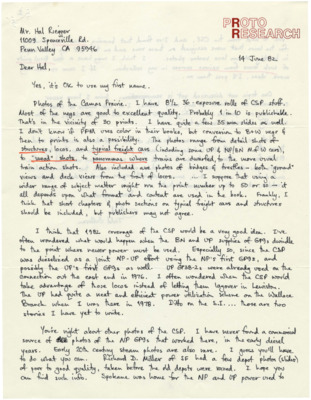 PROTO
RESEARCH
Mr. Hal Riegger
11009 Spenceville Rd.
Penn Valley CA 95946
14 June 82
Dear Hal,
Yes, it's OK to use my first name.
Photos of the Camas Prairie. I have 8½ 36-exposure rolls of CSP stuff.
Most of the negs are good to excellent quality. Probably 1 in 10 is publishable.
That's in the vicinity of 30 prints. I have quite a few 35mm slides as well.
I don't know if PPM uses color in their books, but conversion to B&W negs &
then to prints is also a possibility. The photos range from detail shots of
structures, locos, and typical freight cars (including some UP & NP/BN M of W cars),
to "usual" shots, to panoramas where trains are dwarfed, to the more usual
train action shots. Also included are photos of bridges & trestles - both "ground"
views and deck views from the front of locos. I suppose that using a
wider range of subject matter might run the print number up to 50 or so - it
all depends upon what format and content are used in the book. Frankly, I
think that short chapters & photo sections on typical freight cars and structures
should be included, but publishers may not agree.
I think that 1982 coverage of the CSP would be a very good idea. I've
often wondered what would happen when the BN and UP supplies of GP9s dwindle
to the point where newer power must be used. Especially so, since the CSP
was dieselized as a joint NP-UP effort using the NP's first GP9s, and
possibly the UP's first GP9s as well. UP SD24s were already used on the
connection out the east end in 1976. I often wondered when the CSP would
take advantage of those locos instead of letting them layover in Lewiston.
The UP had quite a neat and efficient power utilization scheme on the Wallace
Branch when I was there in 1978. Ditto on the I.... those are two
stories I have yet to write.
You're right about other photos of the CSP. I have never found a commercial
source of photos of the NP GP9s that worked there, in the early diesel
years. Early 20th century steam photos are also rare. I guess you'll have
to do what you can. Richard D. Miller of IF had a few depot photos (slides)
of poor to good quality, taken before the old depots were razed. I hope you
can find such info. Spokane was home for the NP and UP power used to